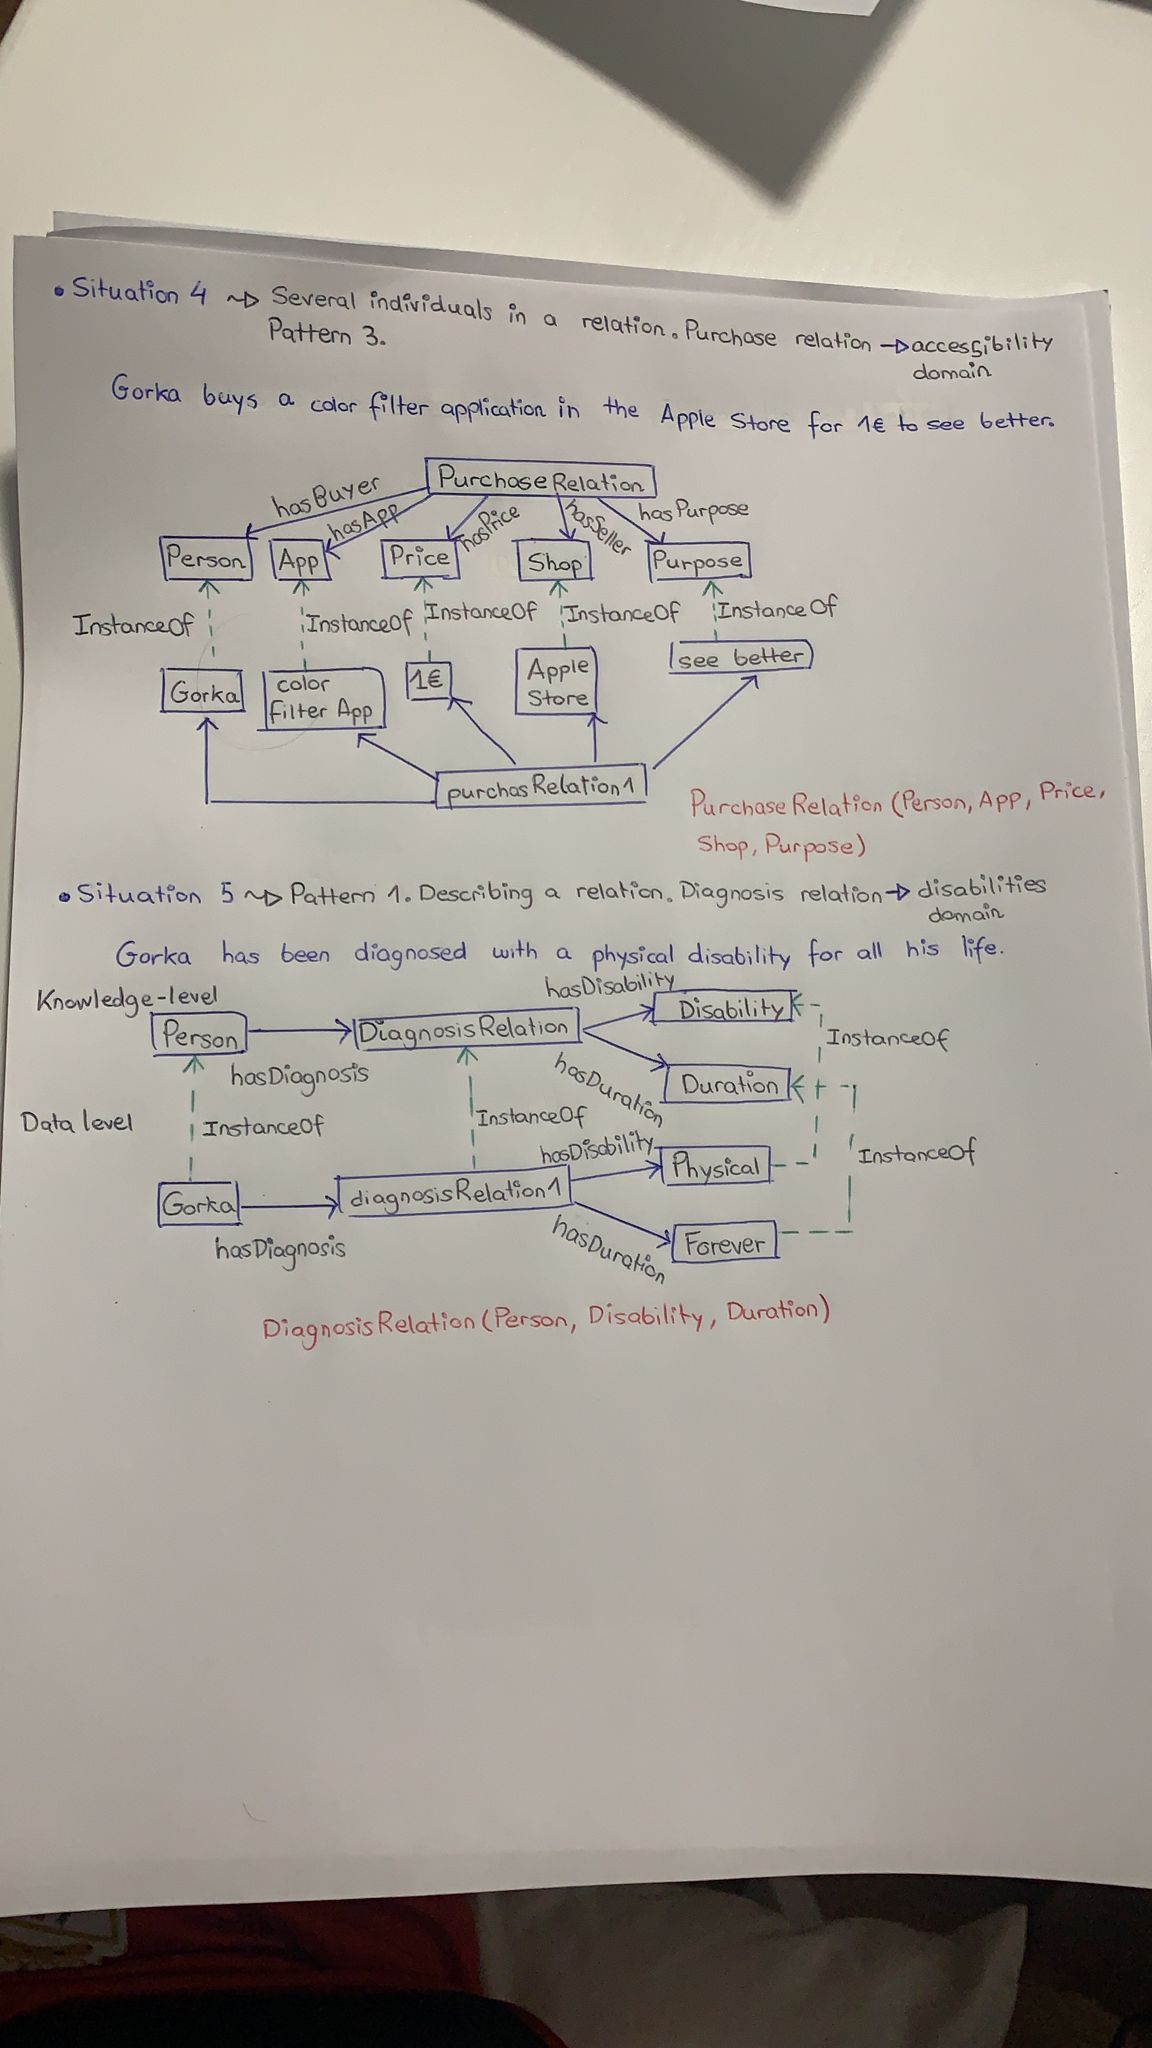 • Situation 4 ~> Several individuals in a relation. Purchase relation -> accessibility
Pattern 3.
domain
Gorka buys a color filter application in the Apple Store for 1€ to see better.
PurchaseRelation
hasBuyer
hasApp
hasPrice
hasSeller
hasPurpose
Person
App
Price
Shop
Purpose
InstanceOf
InstanceOf
InstanceOf
InstanceOf
Instance Of
Gorka
color
filter App
1€
Apple
Store
see better
purchasRelation1
PurchaseRelation (Person, App, Price,
Shop, Purpose)
• Situation 5 ~> Pattern 1. Describing a relation. Diagnosis relation -> disabilities
domain
Gorka has been diagnosed with a physical disability for all his life.
Knowledge-level
hasDisability
Person
DiagnosisRelation
Disability
InstanceOf
hasDiagnosis
hasDuration
Duration
Data level
InstanceOf
InstanceOf
hasDisability
Physical
InstanceOf
Gorka
diagnosisRelation1
hasDiagnosis
hasDuration
Forever
DiagnosisRelation (Person, Disability, Duration)